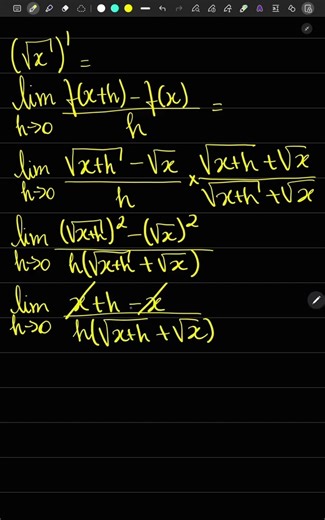 (√x)' =
lim h→0 (f(x+h) - f(x))/h =
lim h→0 (√(x+h) - √x)/h × (√(x+h) + √x)/(√(x+h) + √x)
lim h→0 ((√(x+h))² - (√x)²)/(h(√(x+h) + √x))
lim h→0 (x + h - x)/(h(√(x+h) + √x))